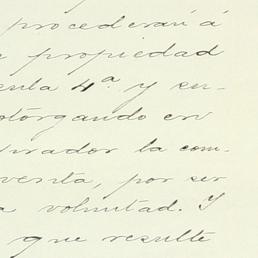 procederán á
propiedad
4ª y su-
otorgando en
la com-
venta, por ser
a voluntad. Y
que resulte